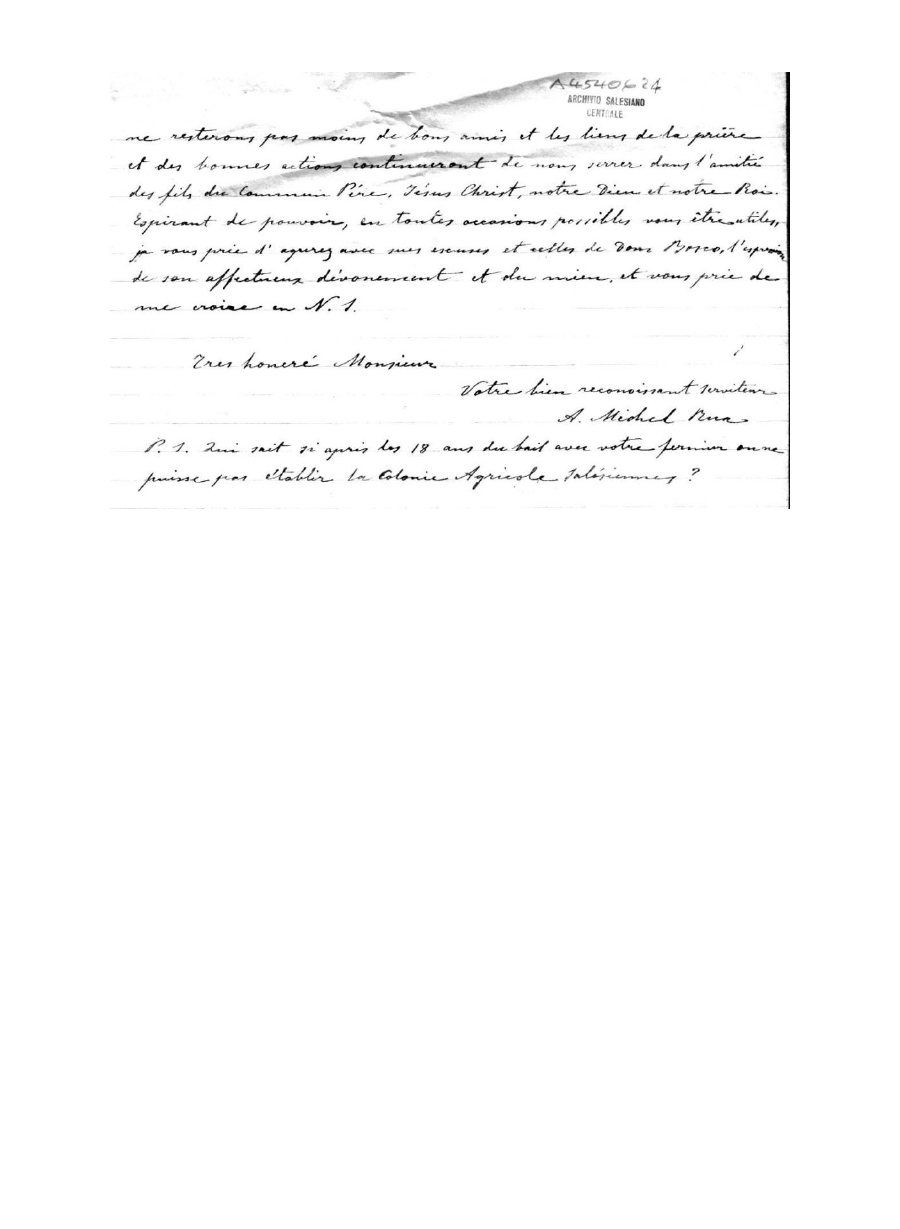 A4540624
ARCHIVIO SALESIANO
CENTRALE
ne resterons pas moins de bons amis et les liens de la prière
et des bonnes actions continueront de nous serrer dans l'amitié
des fils du Commun Père, Jésus Christ, notre Dieu et notre Roi.
Espirant de pouvoir, en toutes occasions possibles vous être utiles,
je vous prie d' agurez avec mes escuses et celles de Dom Bosco, l'
de son affectueux dévouement et du mien, et vous prie de
me croire en N. S.
Tres honoré Monsieur
Votre bien reconoissant serviteur
A. Michel Rua
P. S. Qui sait si après les 18 ans du bail avec votre fermier on ne
puisse pas établir la Colonie Agricole Salésiennes ?